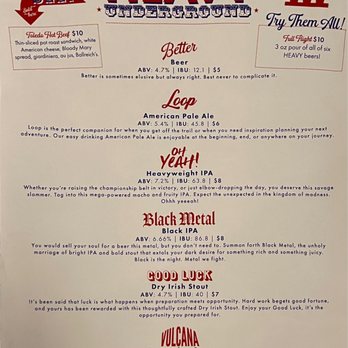 UNDERGROUND
Toledo Hot Beef $10
Thin-sliced pot roast sandwich, white
American cheese, Bloody Mary
spread, giardiniera, au jus, Ballreich's.
Try Them All!
Full Flight $10
3 oz pour of all of six
HEAVY beers!
Better
Beer
ABV: 4.7% | IBU: 12.1 | $5
Better is sometimes elusive but always right. Best never to complicate it.
Loop
American Pale Ale
ABV: 5.4% | IBU: 45.8 | $6
Loop is the perfect companion for when you get off the trail or when you need inspiration planning your next
adventure. Our easy drinking American Pale Ale is enjoyable at the beginning, end, or anywhere on your journey.
OH
YEAH!
Heavyweight IPA
ABV: 7.2% | IBU: 63.8 | $8
Whether you're raising the championship belt in victory, or just elbow-dropping the day, you deserve this savage
slammer. Tag into this mega-powered macho and fruity IPA. Expect the unexpected in the kingdom of madness.
Ohhh yeeeah!
Black Metal
Black IPA
ABV: 6.66% | IBU: 86.8 | $8
You would sell your soul for a beer this metal, but you don't need to. Summon forth Black Metal, the unholy
marriage of bright IPA and bold stout that extols your dark desire for something rich and something juicy.
Black is the night. Metal we fight.
GOOD LUCK
Dry Irish Stout
ABV: 4.7% | IBU: 40 | $7
It's been said that luck is what happens when preparation meets opportunity. Hard work begets good fortune,
and yours has been rewarded with this thoughtfully crafted Dry Irish Stout. Enjoy your Good Luck, it's the
opportunity you prepared for.
VULCANA